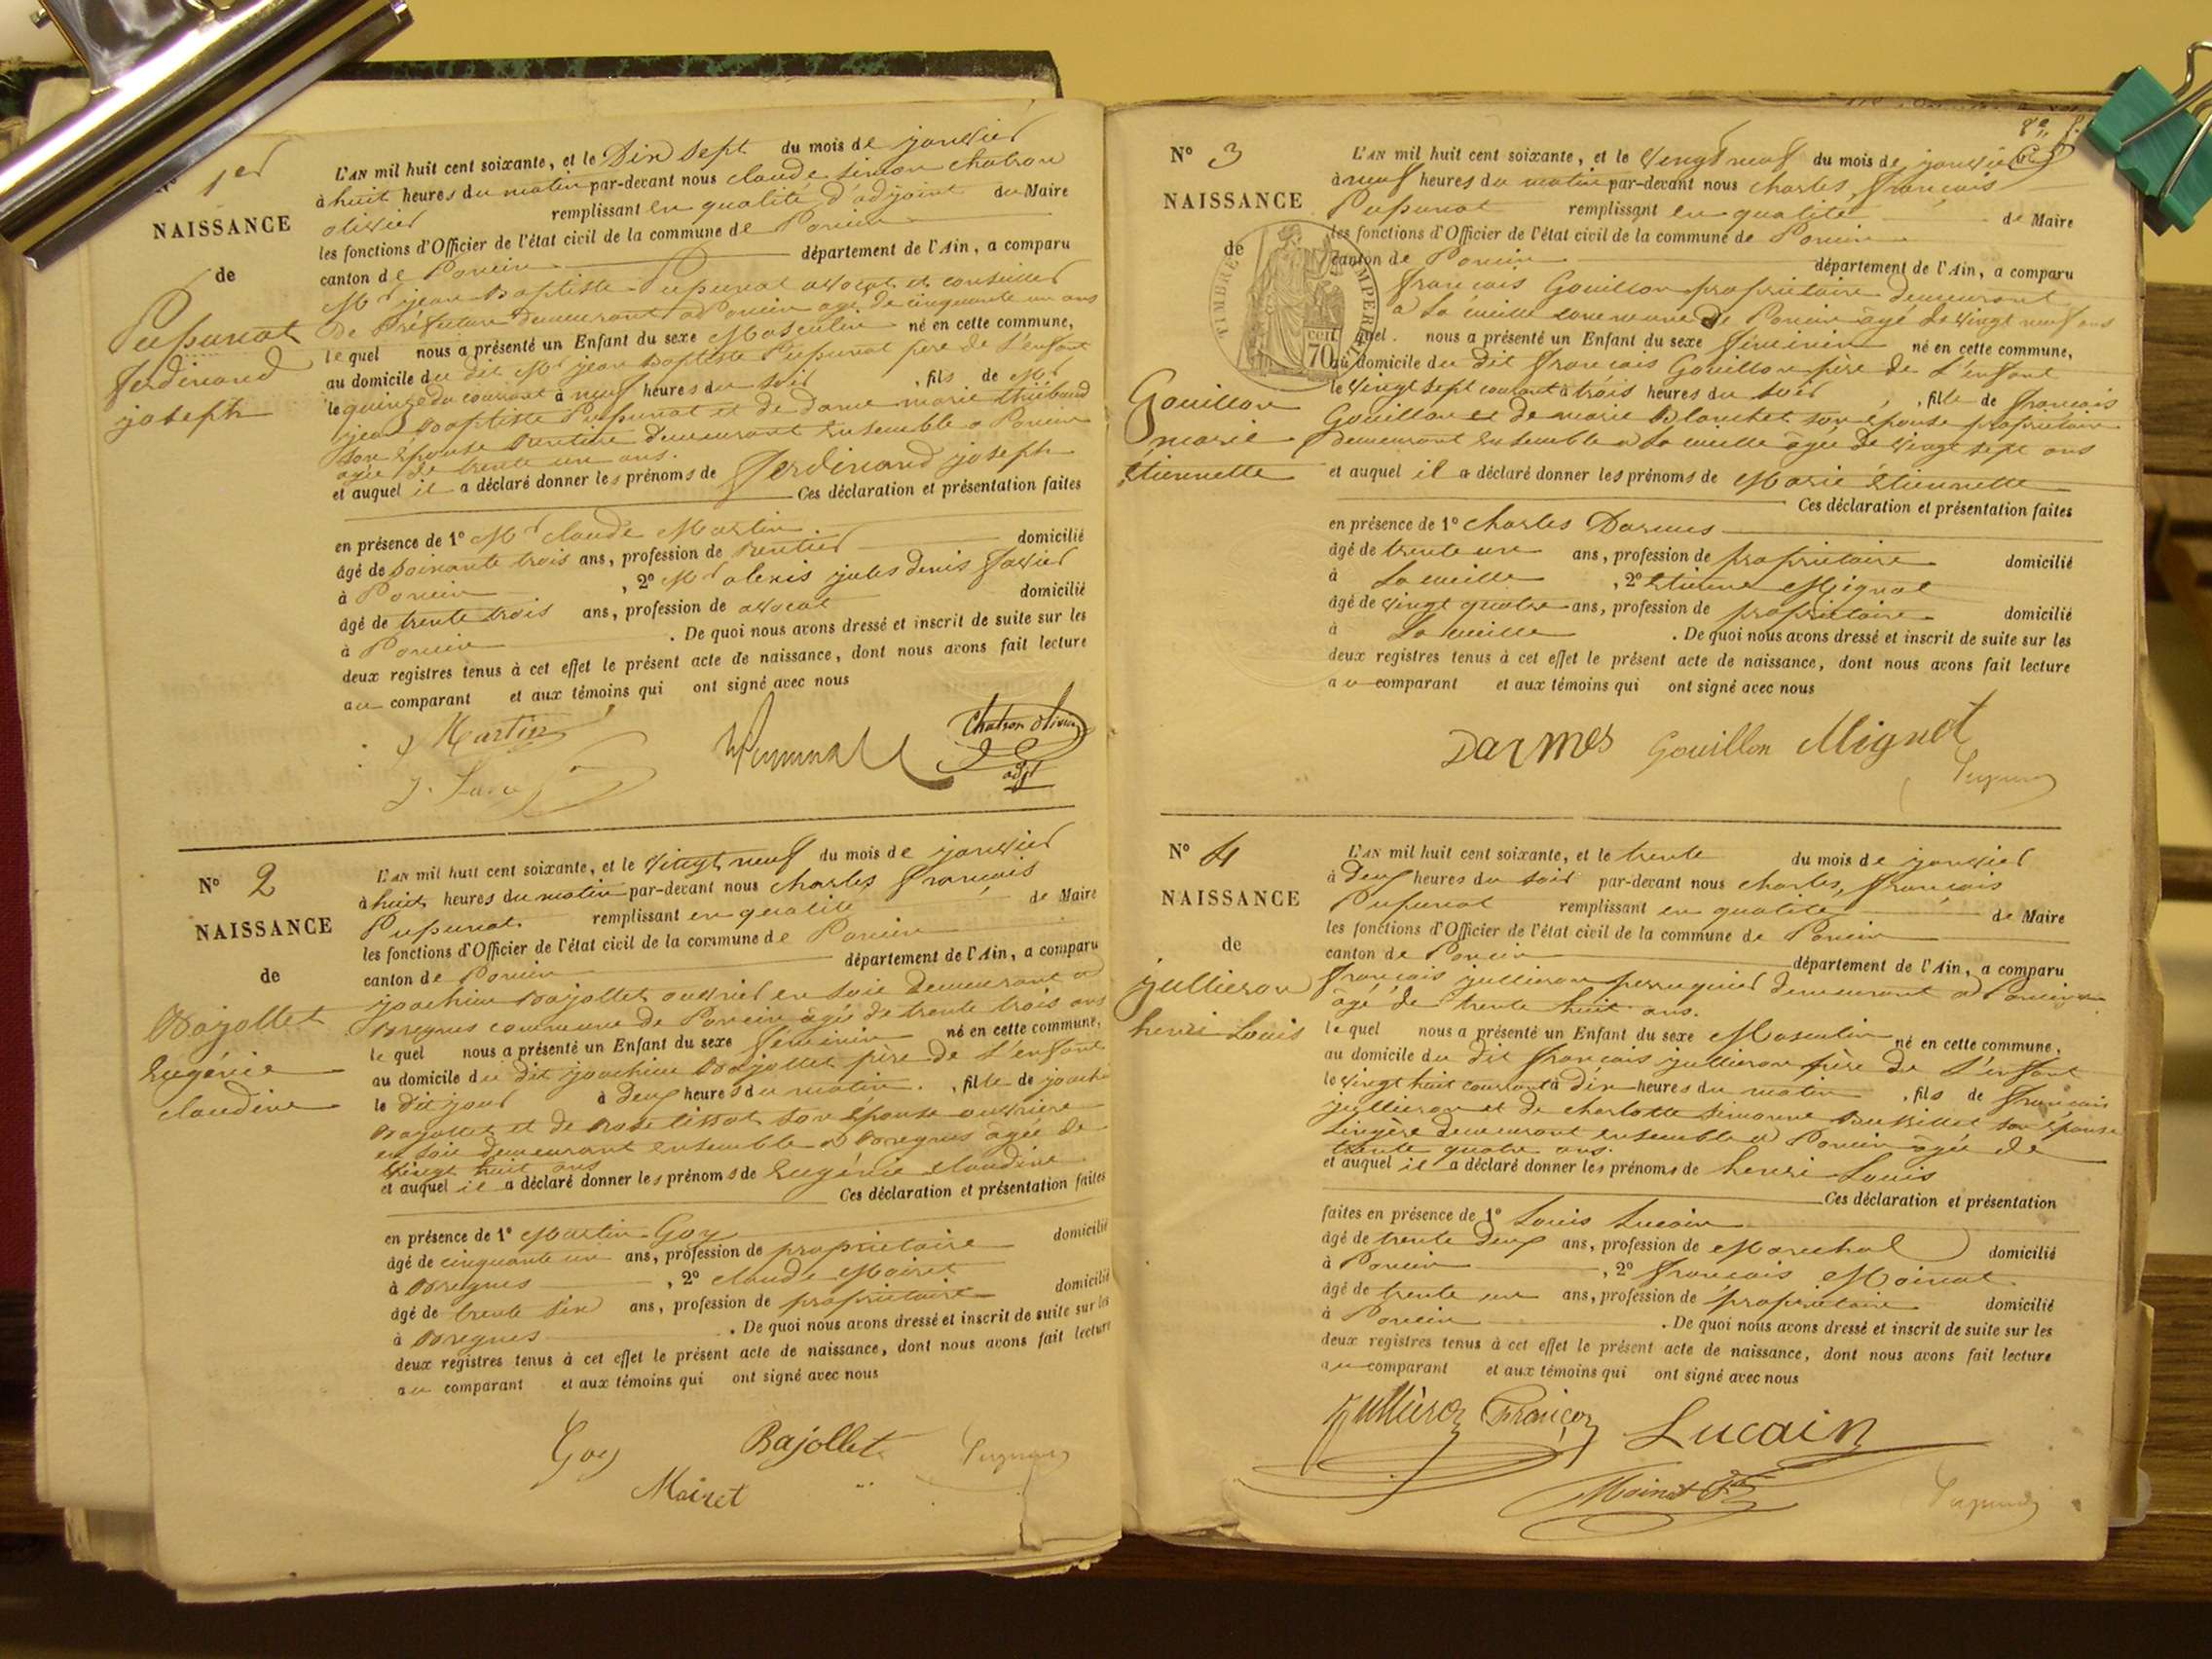 N° 1er
NAISSANCE
de
Pupunat
ferdinand
joseph
L'AN mil huit cent soixante, et le Dix sept du mois de janvier
à huit heures du matin par-devant nous claude simon chatron
olivier remplissant en qualité d'adjoint du Maire
les fonctions d'Officier de l'état civil de la commune de Poncin
canton de Poncin département de l'Ain, a comparu
Mr jean Baptiste Pupunat avocat et conseiller
de Préfecture demeurant à Poncin agé de cinquante un ans
lequel nous a présenté un Enfant du sexe Masculin né en cette commune,
au domicile du dit Mr jean Baptiste Pupunat père de l'enfant
le quinze du courant à neuf heures du soir, fils de Mr
jean Baptiste Pupunat et de Dame marie thiébaud
son épouse Rentière demeurant ensemble a Poncin
agée de trente un ans.
et auquel il a déclaré donner les prénoms de ferdinand joseph
Ces déclaration et présentation faites
en présence de 1° Mr claude Martin
âgé de soixante trois ans, profession de Rentier domicilié
à Poncin, 2° Mr alexis jules denis
âgé de trente trois ans, profession de avocat domicilié
à Poncin. De quoi nous avons dressé et inscrit de suite sur les
deux registres tenus à cet effet le présent acte de naissance, dont nous avons fait lecture
au comparant et aux témoins qui ont signé avec nous
Martin
Chatron olivier
adjt
N° 2
NAISSANCE
de
Bajollet
Eugénie
claudine
L'AN mil huit cent soixante, et le vingt neuf du mois de janvier
à huit heures du matin par-devant nous charles françois
Pupunat remplissant en qualité de Maire
les fonctions d'Officier de l'état civil de la commune de Poncin
canton de Poncin département de l'Ain, a comparu
joachim Bajollet ouvrier en soie demeurant a
Bregnes commune de Poncin âgé de trente trois ans
le quel nous a présenté un Enfant du sexe féminin né en cette commune,
au domicile du dit joachim Bajollet père de l'enfant
le dit jour à deux heures du matin, fille de joachi
Bajollet et de Rose tissot son épouse ouvrière
en soie demeurant ensemble a Bregnes âgée de
vingt huit ans
et auquel il a déclaré donner les prénoms de Eugénie claudine
Ces déclaration et présentation faites
en présence de 1° Martin Goy
âgé de cinquante un ans, profession de propriétaire domicilié
à Bregnes, 2° claude Mairet
âgé de trente six ans, profession de propriétaire domicilié
à Bregnes. De quoi nous avons dressé et inscrit de suite sur les
deux registres tenus à cet effet le présent acte de naissance, dont nous avons fait lecture
au comparant et aux témoins qui ont signé avec nous
Goy Bajollet
Mairet
N° 3
NAISSANCE
de
TIMBRE IMPERIAL
cent
70
Gouillon
marie
étiennette
L'AN mil huit cent soixante, et le vingt neuf du mois de janvier
à neuf heures du matin par-devant nous charles, françois
Pupunat remplissant en qualité de Maire
les fonctions d'Officier de l'état civil de la commune de Poncin
canton de Poncin département de l'Ain, a comparu
françois Gouillon propriétaire demeurant
a la cueille commune de Poncin âgé de vingt neuf ans
lequel nous a présenté un Enfant du sexe féminin né en cette commune,
au domicile du dit françois Gouillon père de l'enfant
le vingt sept courant à trois heures du soir, fille de françois
Gouillon et de marie Blanchet son épouse propriétaire
demeurant ensemble a la cueille âgée de vingt sept ans
et auquel il a déclaré donner les prénoms de Marie étiennette
Ces déclaration et présentation faites
en présence de 1° charles Darmes
âgé de trente un ans, profession de propriétaire domicilié
à La cueille, 2° Etienne Mignot
âgé de vingt quatre ans, profession de propriétaire domicilié
à La cueille. De quoi nous avons dressé et inscrit de suite sur les
deux registres tenus à cet effet le présent acte de naissance, dont nous avons fait lecture
au comparant et aux témoins qui ont signé avec nous
Darmes Gouillon Mignot
N° 4
NAISSANCE
de
jullieron
henri Louis
L'AN mil huit cent soixante, et le trente du mois de janvier
à deux heures du soir par-devant nous charles, françois
Pupunat remplissant en qualité de Maire
les fonctions d'Officier de l'état civil de la commune de Poncin
canton de Poncin département de l'Ain, a comparu
françois jullieron perruquier demeurant a Poncin
âgé de trente huit ans.
le quel nous a présenté un Enfant du sexe Masculin né en cette commune,
au domicile du dit françois jullieron père de l'enfant
le vingt huit courant à dix heures du matin, fils de françois
jullieron et de charlotte simonne son épouse
Lingère demeurant ensemble a Poncin âgée de
trente quatre ans.
et auquel il a déclaré donner les prénoms de henri Louis
Ces déclaration et présentation
faites en présence de 1° Louis Lucain
âgé de trente deux ans, profession de Marechal domicilié
à Poncin, 2° françois Moinat
âgé de trente un ans, profession de propriétaire domicilié
à Poncin. De quoi nous avons dressé et inscrit de suite sur les
deux registres tenus à cet effet le présent acte de naissance, dont nous avons fait lecture
au comparant et aux témoins qui ont signé avec nous
Jullieron François Lucain
Moinat